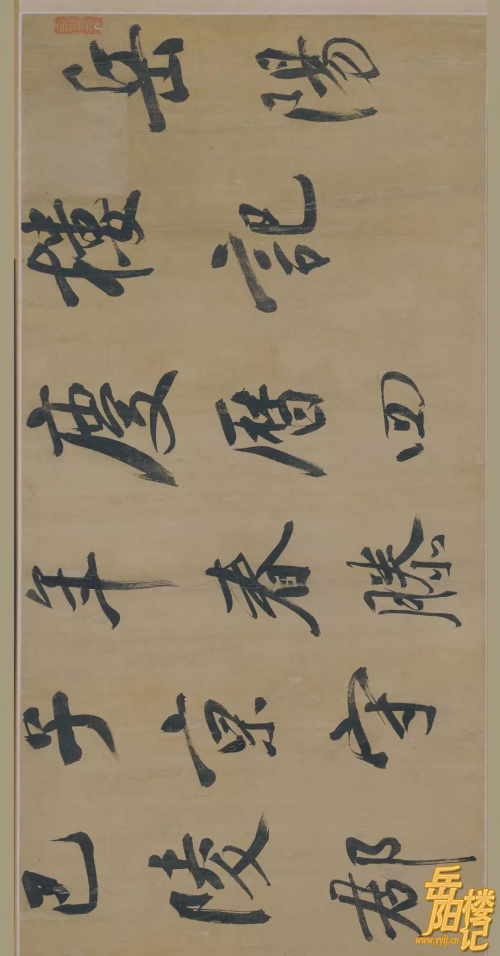 岳陽
樓記
慶曆四
年春滕
子京守
巴陵郡
岳阳
楼记
www.yylj.cn